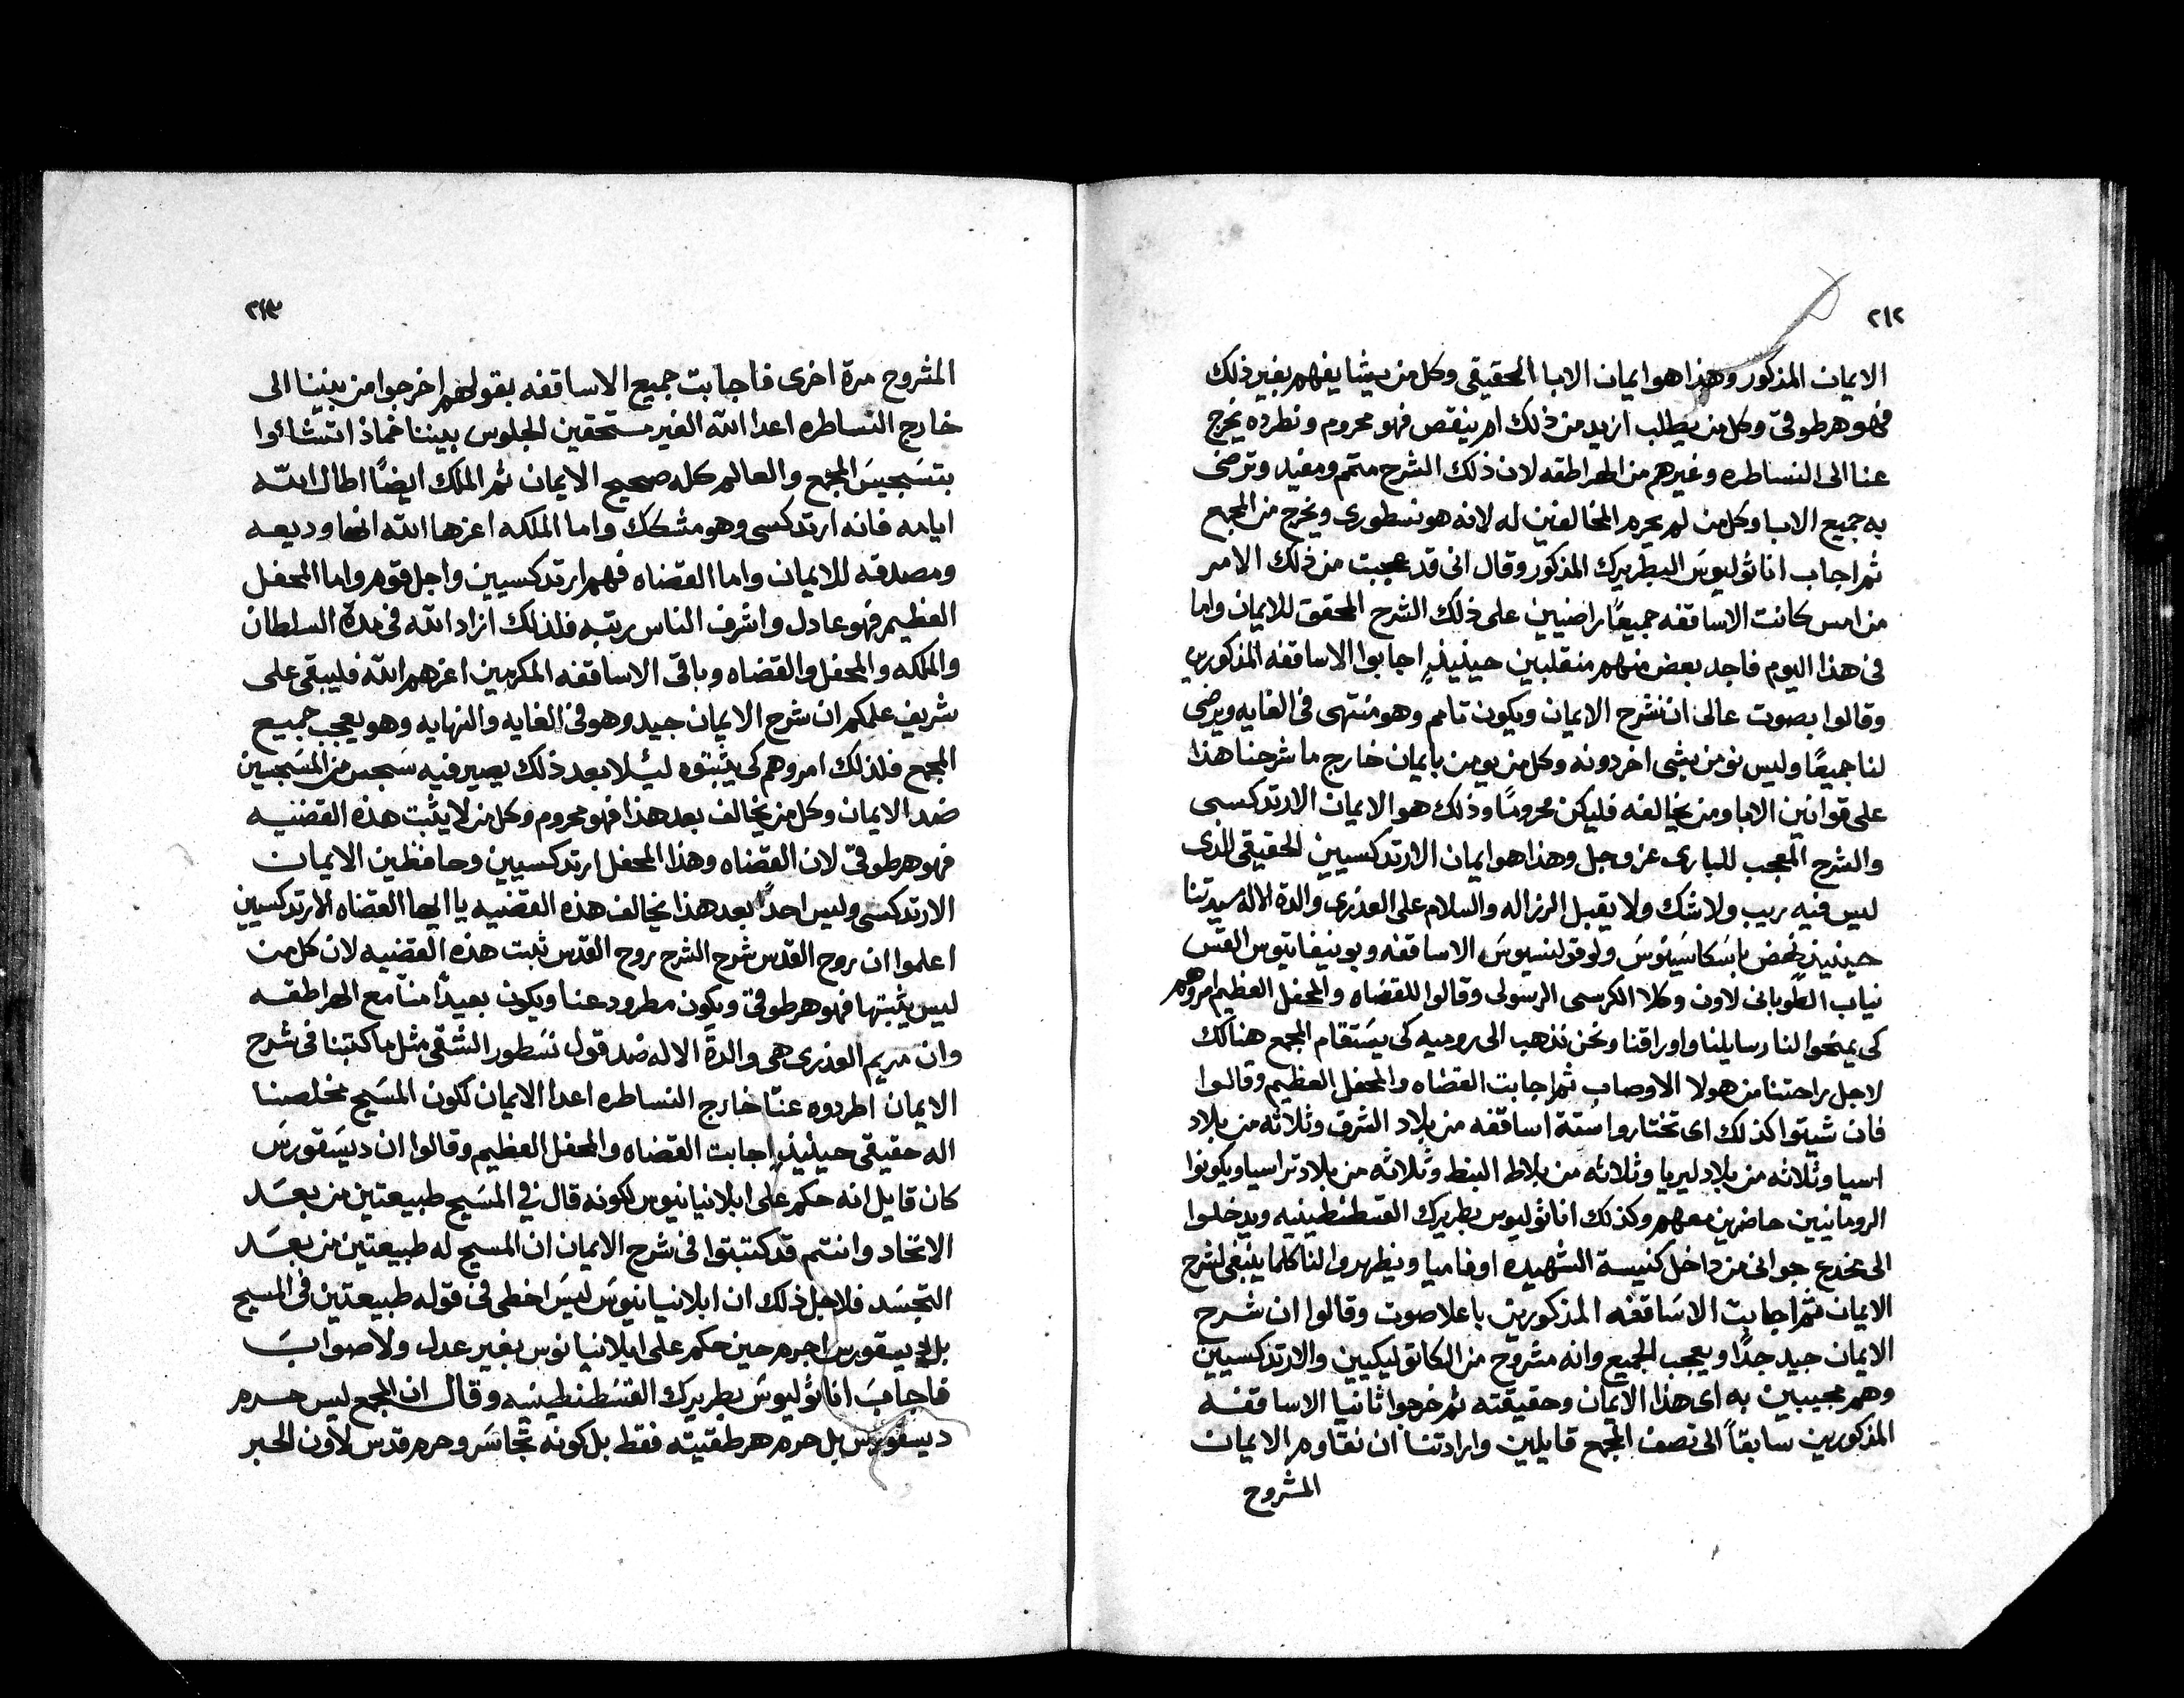 ٢١٢
الايمان المذكور وهذا هو ايمان الابا الحقيقي وكل من يشا يفهم بغير ذلك
فهو هرطوقي وكل من يطلب ازيد من ذلك ام ينقص فهو محروم ونطرده يخرج
عنا الى النساطره وغيرهم من الهراطقه لان ذلك الشرح متمم ومفيد وترضى
به جميع الابا وكل من لم يحرم المخالفين له لانه هو نسطورى ويخرج من المجمع
ثم اجاب اناثوليوس البطريرك المذكور وقال انى قد عجبت من ذلك الامر
من امس كانت الاساقفه جميعًا راضيين على ذلك الشرح المحقق للايمان واما
فى هذا اليوم فاجد بعض منهم منقلبين حينيذٍ اجابوا الاساقفه المذكورين
وقالوا بصوت عالى ان نشرح الايمان ويكون تامم وهو منتهى فى الغايه ويرضى
لنا جميعًا وليس نومن بشى اخر دونه وكل من يومن بايمان خارج ما شرحنا هذا
على قوانين الابا ومن يخالفه فليكن محرومًا وذلك هو الايمان الارتدكسى
والشرح المعجب للبارى عز وجل وهذا هو ايمان الارتدكسيين الحقيقى الذى
ليس فيه ريب ولا شك ولا يقبل الرزاله والسلام على العذرى والدة الاله سيدتنا
حينيذٍ نهض باسكاسينوس ولوقولنسيوس الاساقفه وبونيفاتيوس القس
نياب الطوبانى لاون وكلا الكرسى الرسولى وقالوا للقضاه والمحفل العظيم امروهم
كى يمنحوا لنا رسايلنا واوراقنا ونحن نذهب الى روميه كى يستقام المجمع هنالك
لاجل راحتنا من هولا الاوصاب ثم اجابت القضاه والمحفل العظيم وقالوا
فان شيتوا كذلك اى تختاروا ستة اساقفه من بلاد الشرق وثلاثه من بلاد
اسيا وثلاثه من بلاد ليريا وثلاثه من بلاط البنط وثلاثه من بلاد تراسيا ويكونوا
الرومانيين حاضرين معهم وكذلك اناثوليوس بطريرك القسطنطينيه ويدخلوا
الى مخدع جوانى من داخل كنيسة الشهيده اوفاميا ويظهروا لنا كلما ينبغى لشرح
الايمان ثم اجابت الاساقفه المذكورين باعلا صوت وقالوا ان شرح
الايمان جيد جدًا ويعجب الجميع وانه مشروح من الكاتوليكيين والارتدكسيين
وهم مجيبين به اى هذا الايمان وحقيقته ثم خرجوا ثانيا الاساقفه
المذكورين سابقًا الى نصف المجمع قايلين وارادتنا ان نقاوم الايمان
المشروح
٢١٣
المشروح مرة اخرى فاجابت جميع الاساقفه بقولهم اخرجوا من بيننا الى
خارج النساطره اعدا الله الغير مستحقين الجلوس بيننا فماذ انتشائوا
بتسجيس المجمع والعالم كله صحيح الايمان ثم الملك ايضًا اطال الله
ايامه فانه ارتدكسى وهو متمسك واما الملكه اعزها الله انها وديعه
ومصدقه للايمان واما القضاه فهم ارتدكسيين واجل قوم واما المحفل
العظيم فهو عادل واشرف الناس رتبه فلذلك ازاد الله فى مدة السلطان
والملكه والمحفل والقضاه وباقى الاساقفه المكرمين اعزهم الله فليبقى على
شريف علمكم ان شرح الايمان جيد وهو فى الغايه والنهايه وهو يعجب جميع
المجمع فلذلك امروهم كى يثبتوه ليلا بعد ذلك يصير فيه سجس من المسجسين
ضد الايمان وكل من يخالف بعد هذا فهو محروم وكل من لا يثبت هذه القضيه
فهو هرطوقى لان القضاه وهذا المحفل ارتدكسيين وحافظين الايمان
الارتدكسى وليس احدًا بعد هذا يخالف هذه القضيه يا ايها القضاه الارتدكسيين
اعلموا ان روح القدس شرح الشرح روح القدس ثبت هذه القضيه لان كل من
ليس يثبتها فهو هرطوقى ويكون مطرود عنا ويكون بعيدًا منا مع الهراطقه
وان مريم العذرى هى والدة الاله ضد قول نسطور الشقى مثل ما كتبنا فى شرح
الايمان اطردوه عنا خارج النساطره اعدا الايمان لكون المسيح مخلصنا
اله حقيقى حينيذٍ اجابت القضاه والمحفل العظيم وقالوا ان ديسقورس
كان قايل انه حكم على ابلانيانيوس لكونه قال فى المسيح طبيعتين من بعد
الاتحاد وانتم قد كتبتوا فى شرح الايمان ان المسيح له طبيعتين من بعد
التجسد فلاجل ذلك ان ابلانيانيوس ليس اخطى فى قوله طبيعتين فى المسيح
بل ديسقورس اجرم حين حكم على ابلانيانوس بغير عدل ولا صواب
فاجاب اناثوليوس بطريرك القسطنطينيه وقال ان المجمع ليس حرم
ديسقورس بل حرم هرطقتيته فقط بل كونه تجاسر وحرم قدس لاون الحبر